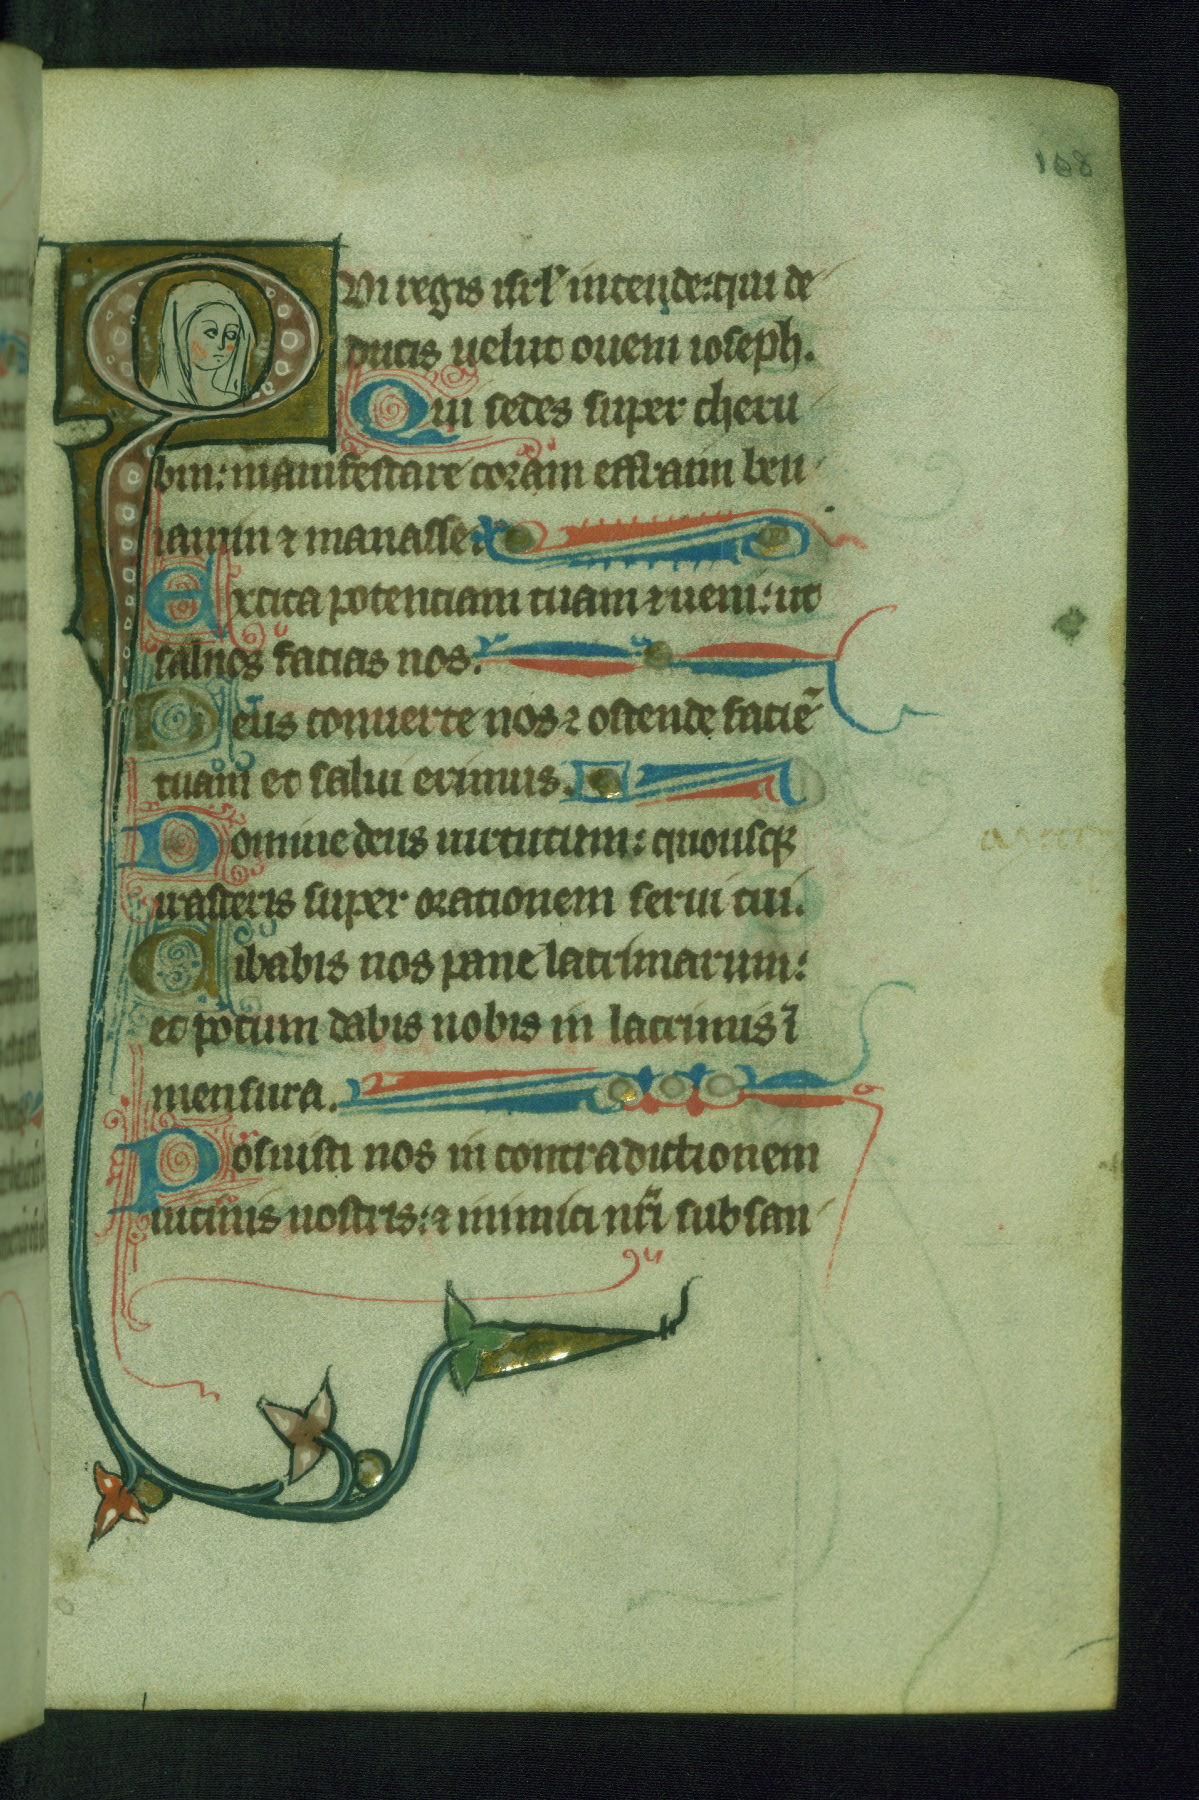 108
QVi regis isrl' intende: qui de
ducis uelut ouem ioseph.
Qui sedes super cheru
bin: manifestare coram effraim ben
iamin ⁊ manasse.
Excita potenciam tuam ⁊ ueni: ut
saluos facias nos.
Deus conuerte nos ⁊ ostende faciē
tuam et salui erimus.
Domine deus uirtutum: quousq̢
irasceris super orationem serui tui.
Cibabis nos pane lacrimarum:
et potum dabis nobis in lacrimis ī
mensura.
Posuisti nos in contradictionem
uicinis nostris: ⁊ inimici nr̄i subsan